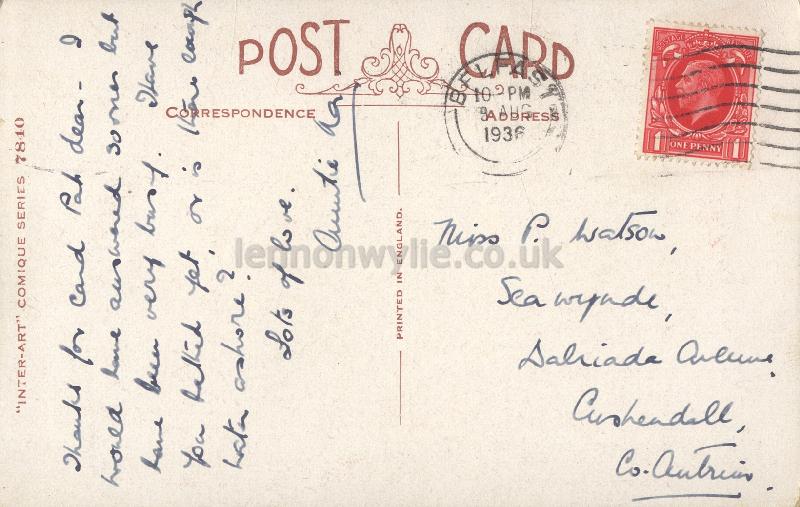 POST CARD
CORRESPONDENCE
ADDRESS
BELFAST
10 PM
AUG
1936
1 ONE PENNY 1
"INTER-ART" COMIQUE SERIES 7840
PRINTED IN ENGLAND.
Thanks for card Pat dear - I
would have answered sooner but
have been very busy. Have
you bathed yet, or is there enough
water ashore?
Lots of love.
Auntie
Miss P. Watson,
Seawynde,
Dalriada Avenue,
Cushendall,
Co. Antrim.
lennonwylie.co.uk